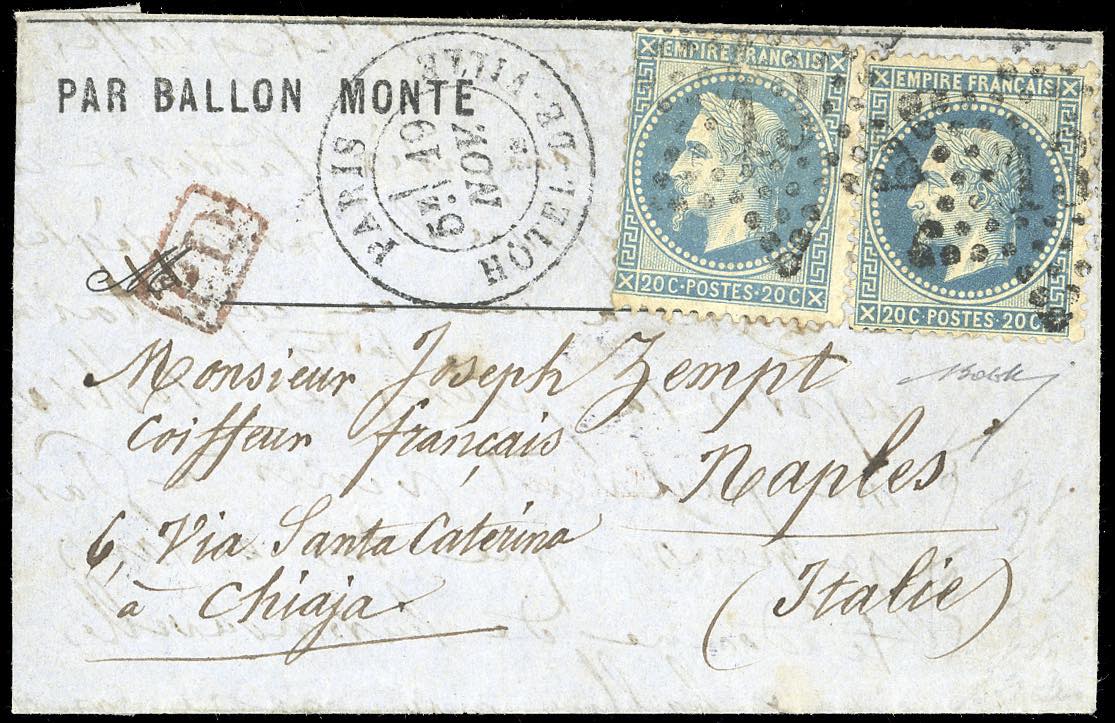 PAR BALLON MONTÉ
PARIS
HOTEL-DE-VILLE
5E
19
NOV.
P.D.
EMPIRE FRANÇAIS
20C·POSTES·20C
EMPIRE FRANÇAIS
20C·POSTES·20C
Monsieur Joseph Zempt
Coiffeur français
Naples
6, Via Santa Caterina
à Chiaja.
(Italie)